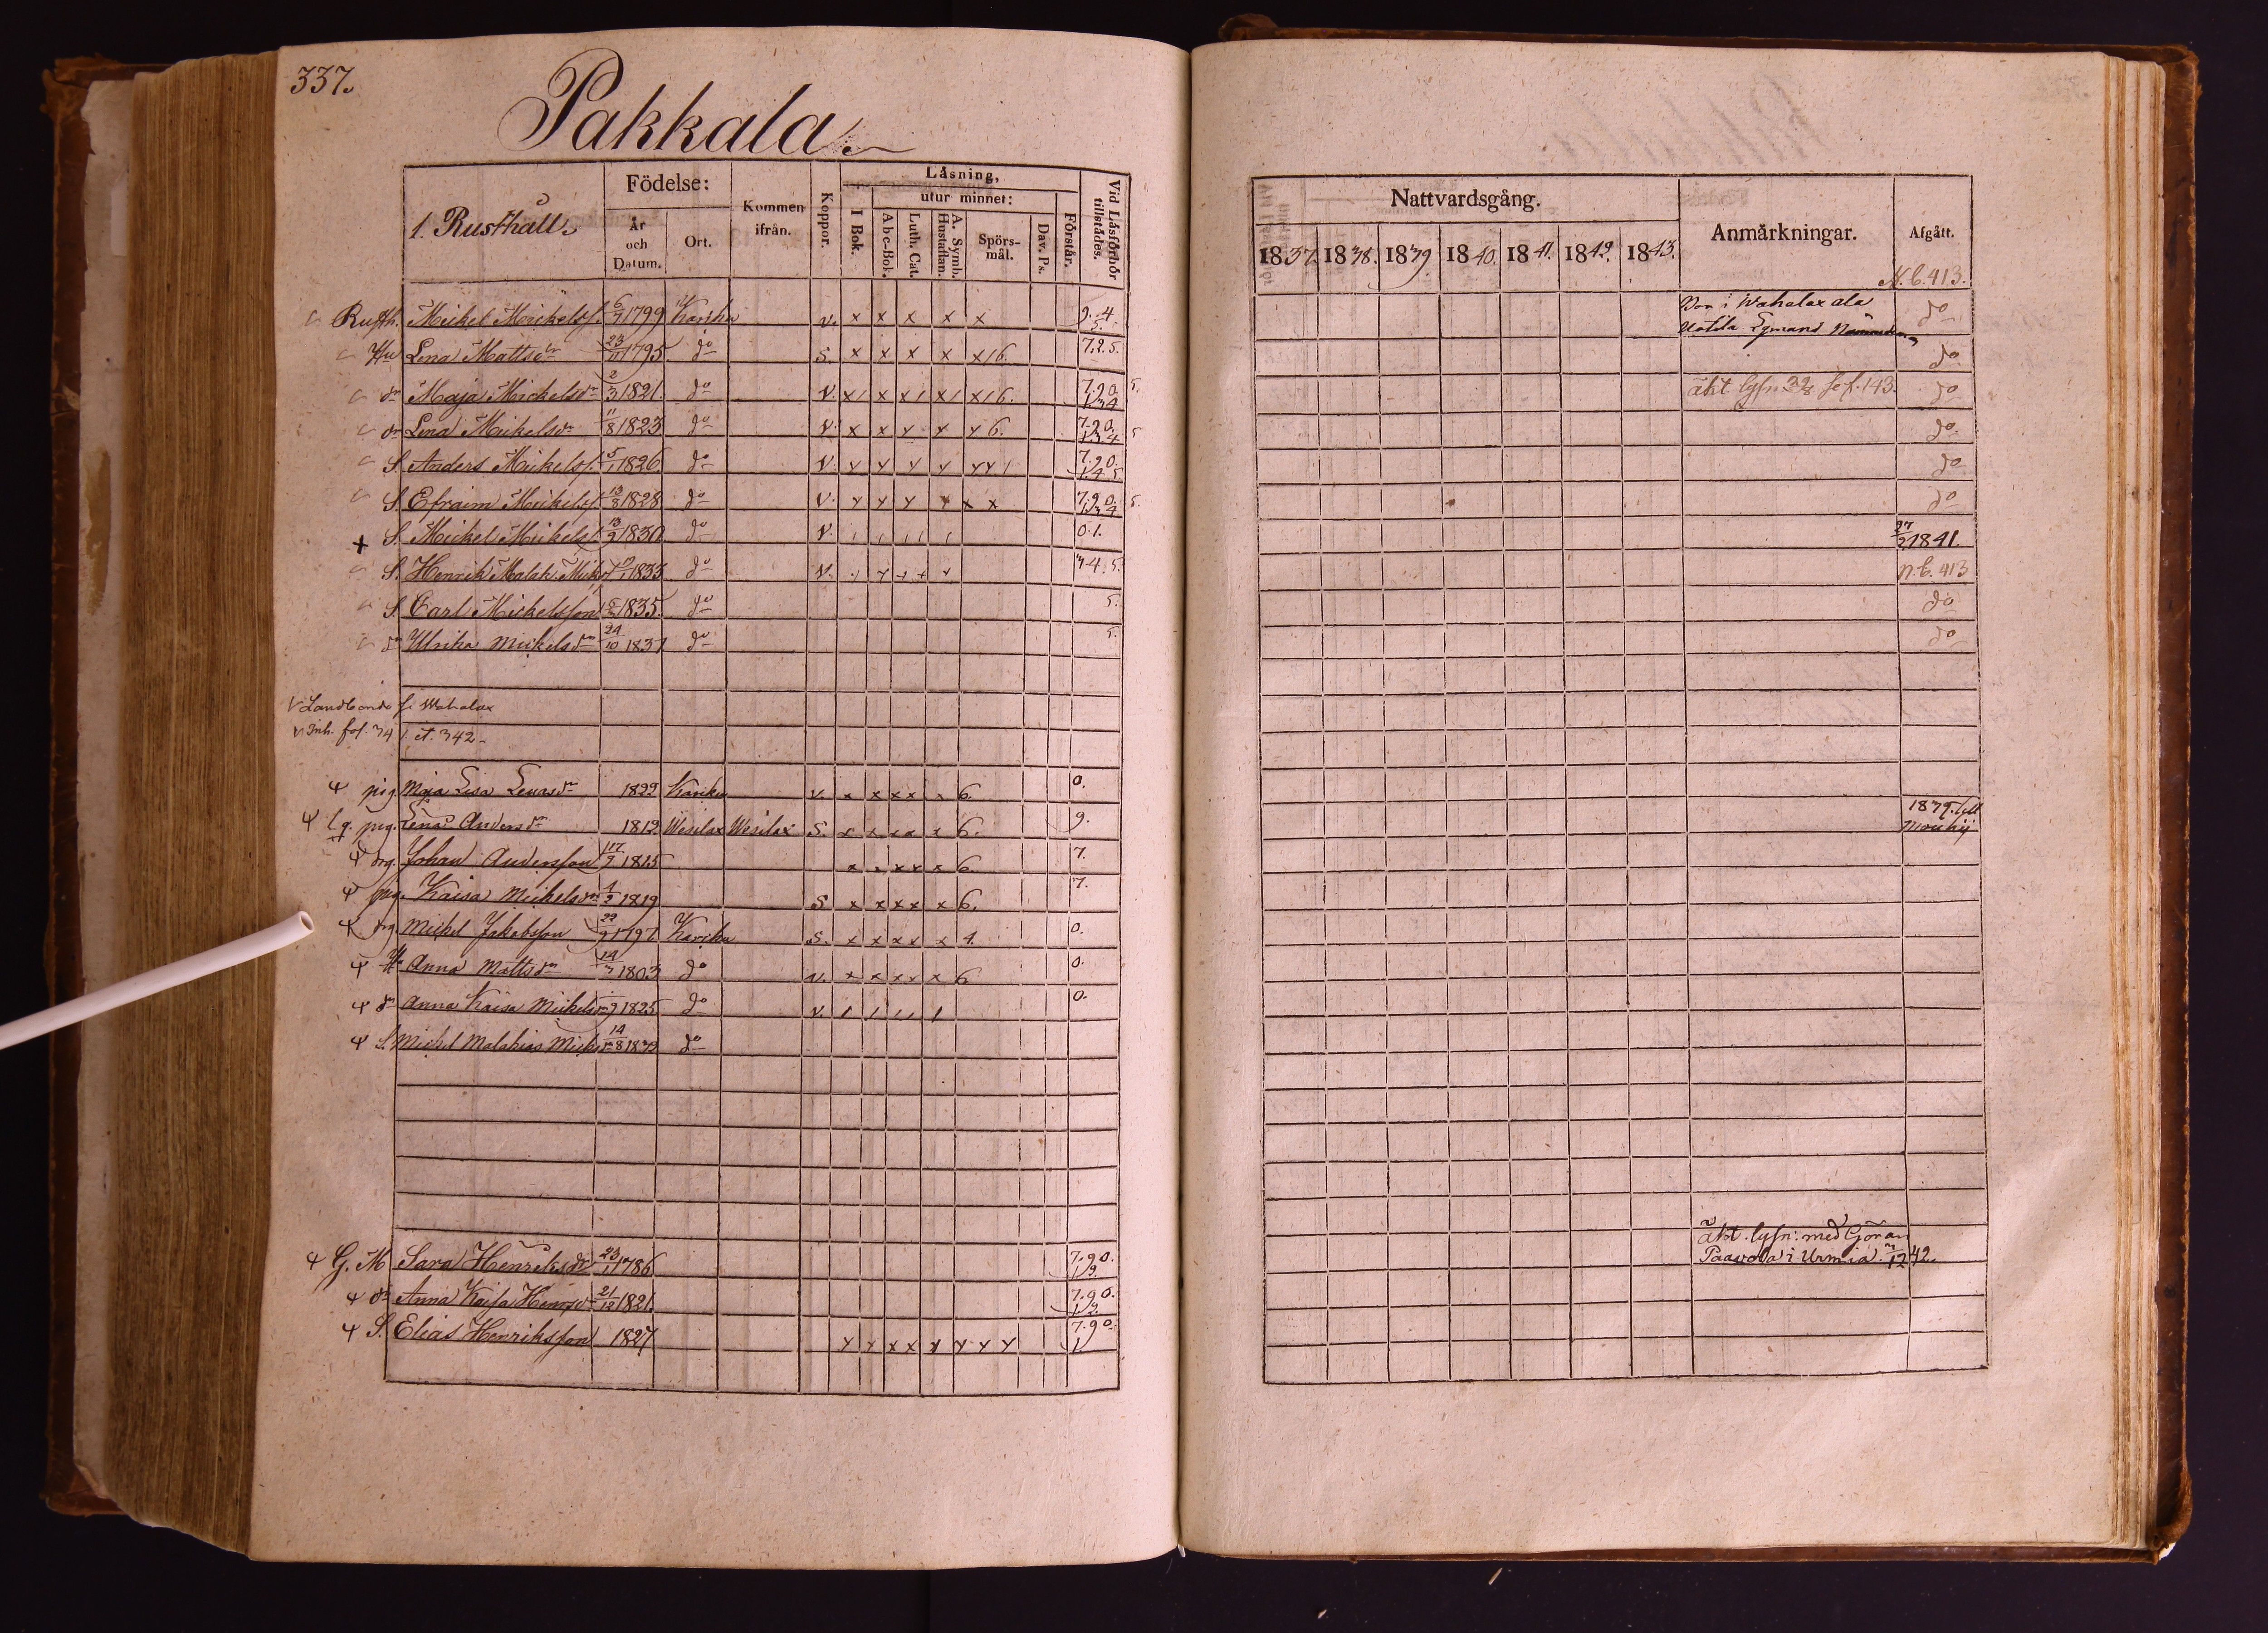 337.
Pakkala.
1. Rusthåll.
Födelse:
År och Datum.
Ort.
Kommen ifrån.
Koppor.
Läsning,
I Bok.
utur minnet:
Abc-Bok.
Luth. Cat.
A. Symb. Hustaflan.
Spörs-mål.
Dav. Ps.
Förstår.
Vid Läsförhör tillstädes.
Rusth. Mickel Mickelss. 6/9 1799 Kariku v. x x x x x 9.4. 5.
Hu Lena Mattsdr 23/11 1795 do S. x x x x x16. 7.2.5.
dr Maja Mickelsdr 2/3 1821. do V. x x x x x16. 7.9.0. 1.3.4 5.
dr Lena Mickelsdr 11/8 1823 do V. x x x x x6. 7.9.0. 1.3.4 5
S. Anders Mickelss. 5/1 1826. do V. 7.9.0. 1.4.5
S. Efraim Mickelss. 13/8 1828 do V. 7.9.0. 1.3.4 5.
+ S. Mickel Mickelss. 13/9 1830 do V. 0.1.
S. Henrik Malak. Micks 1833 do V. 3.4.5.
S. Carl Mickelsson 1835. do 5.
dr Ulrika Mickelsdr 24/10 1837 do 5.
v Landbonde f. Wahalax
v Inh. fol. 341. et. 342-
pig. Maja Lisa Lenasdr 1822 Kariku v. x x x x x 6. 0.
pig. Lena Andersdr 1812 Wesilax Wesilax S. x x x x x 6. 9.
drg. Johan Andersson 17/9 1815 x x x x x 6 7.
pig. Kaisa Mickelsdr 1819 S x x x x x 6. 7.
drg. Mickel Jakobsson 22/9 1797 Kariku S. x x x x x 4. 0.
Hu Anna Mattsdr 14/3 1803 do v. x x x x x 6 0.
dr Anna Kaisa Mickelsdr 1825 do V. 0.
S. Mickel Malakias Micks 14/8 1832 do
G. M Sara Henriksdr 23/1 1786 7.9.0. 1.3.
dr Anna Kaisa Henrsdr 21/12 1821. 7.9.0. 1.3.
S. Elias Henriksson 1827 7.9.0. 1
Nattvardsgång.
1837. 1838. 1839 1840. 1841. 1842. 1843.
Anmärkningar.
Afgått.
N.b. 413.
Bor i Wahalax ala do
Uotila
do
äkt. lysn. fol. 143. do
do
do
do
27/2 1841.
n.b. 413
do
do
1839. till
Mouhij
äkt. lysn. med Göran
Paavola i Urmia 12 42.